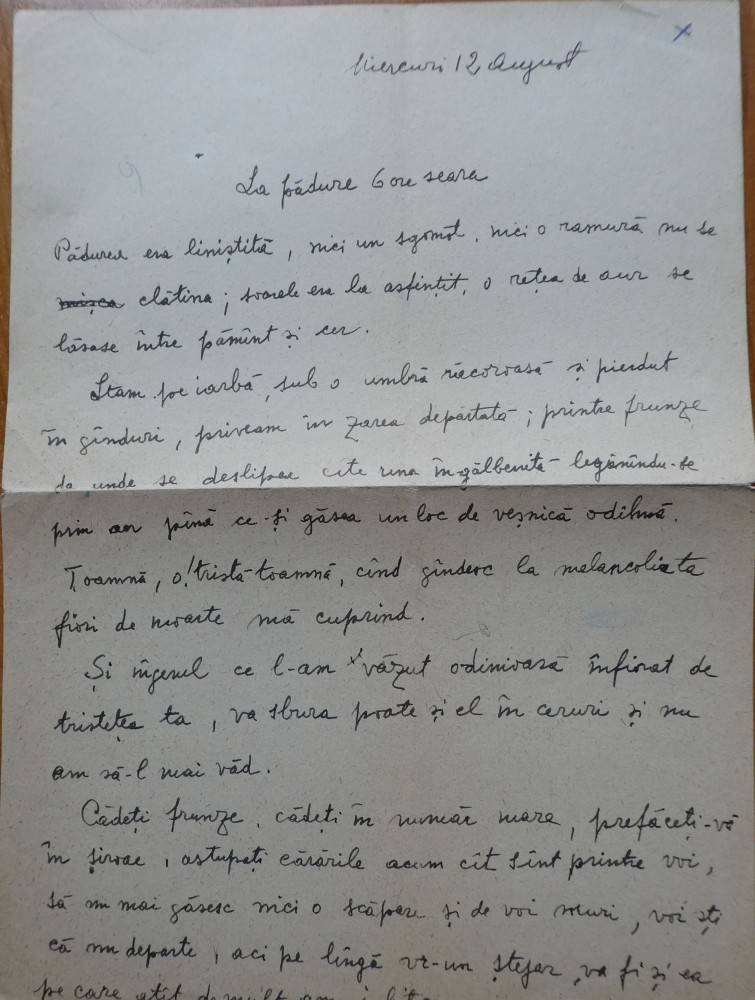 x
Miercuri 12 August
La pădure 6 ore seara
Pădurea era liniștită, nici un sgomot, nici o ramură nu se
mișca clătina; soarele era la asfințit, o rețea de aur se
lăsase între pămînt și cer.
Stam pe iarbă, sub o umbră răcoroasă și pierdut
în gînduri, priveam în zarea depărtată; printre frunze
de unde se deslipea cîte una îngălbenită legănîndu-se
prin aer pînă ce-și găsea un loc de veșnică odihnă.
Toamnă, o! tristă toamnă, cînd gîndesc la melancolia ta
fiori de moarte mă cuprind.
Și îngerul ce l-am văzut odinioară înfiorat de
tristețea ta, va sbura poate și el în ceruri și nu
am să-l mai văd.
Cădeți frunze, cădeți în număr mare, prefăceți-vă
în șiroae, astupați cărările acum cît sînt printre voi,
să nu mai găsesc nici o scăpare și de voi muri, voi ști
că nu departe, aci pe lîngă vr-un stejar, va fi și ea
pe care atît de mult am